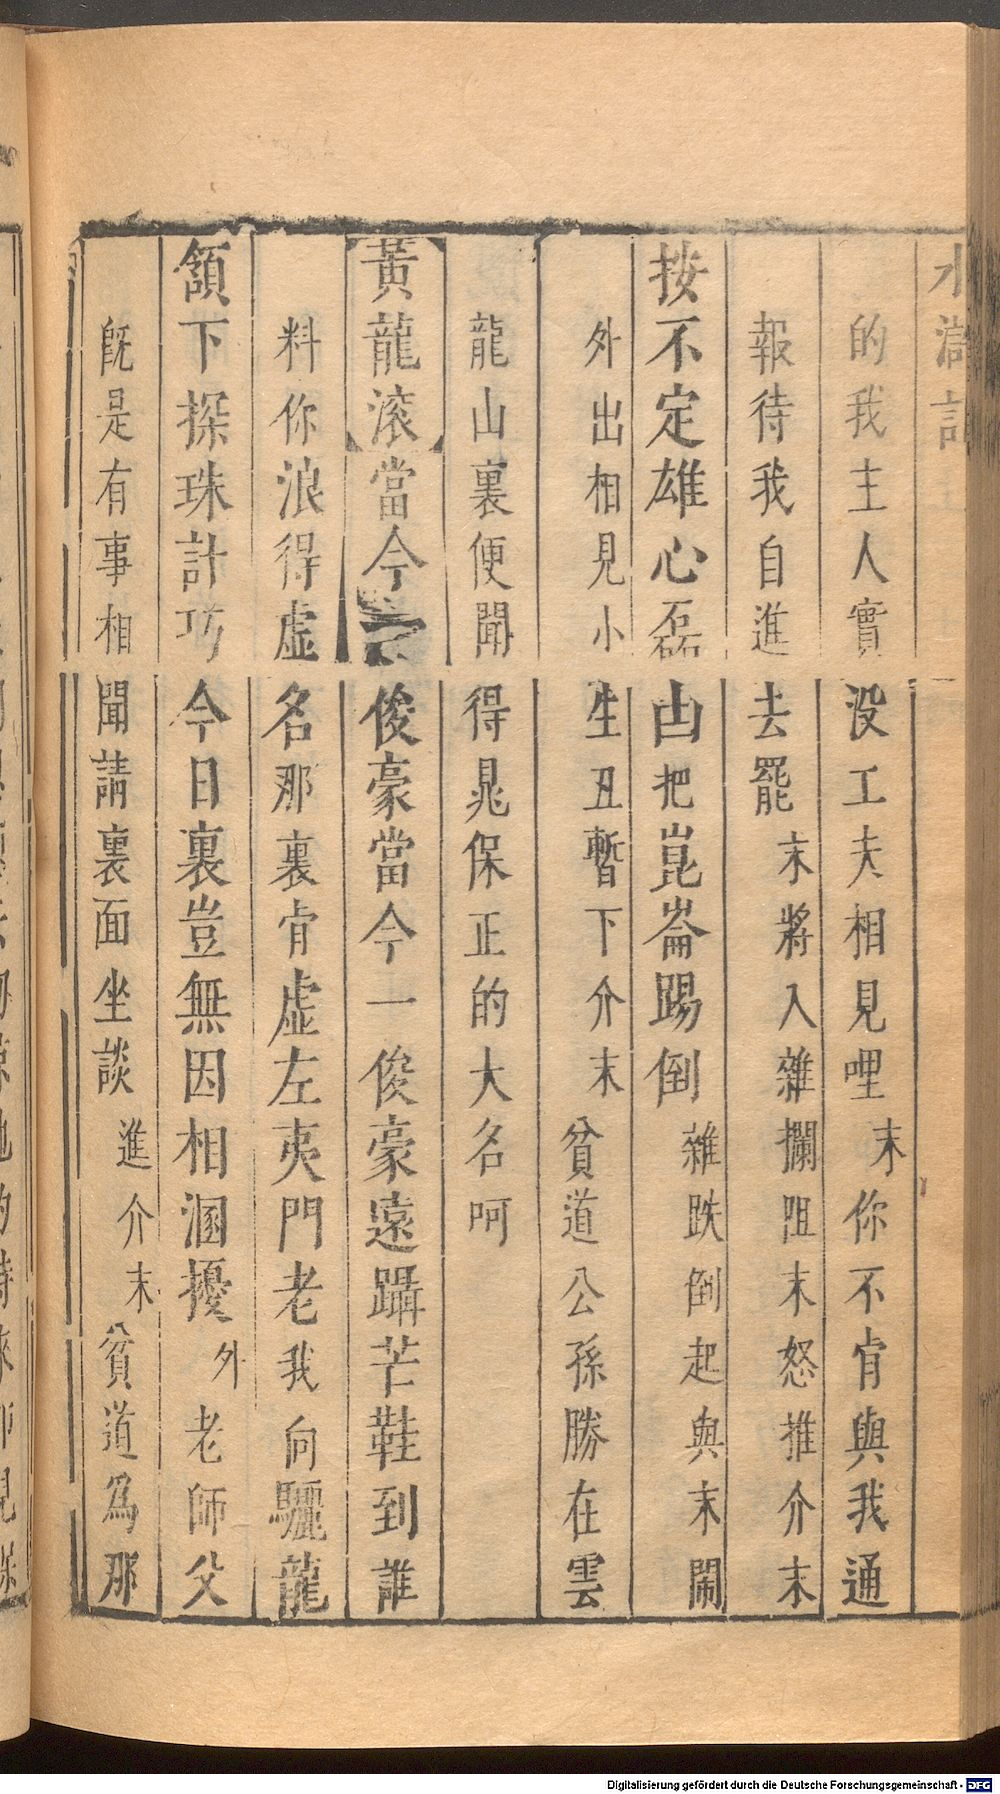 水滸記
的我主人實没工夫相見哩末你不肯與我通
報待我自進去罷末將入雜攔阻末怒推介末
按不定雄心磊凷把崑崙踢倒雜跌倒起與末鬧
外出相見小生丑暫下介末貧道公孫勝在雲
龍山裏便聞得晁保正的大名呵
黃龍滚當今一俊豪當今一俊豪遠躡芒鞋到誰
料你浪得虛名那裏肯虛左夷門老我向驪龍
頷下探珠計巧今日裏豈無因相溷擾外老師父
旣是有事相聞請裏面坐談進介末貧道爲那
Digitalisierung gefördert durch die Deutsche Forschungsgemeinschaft - DFG